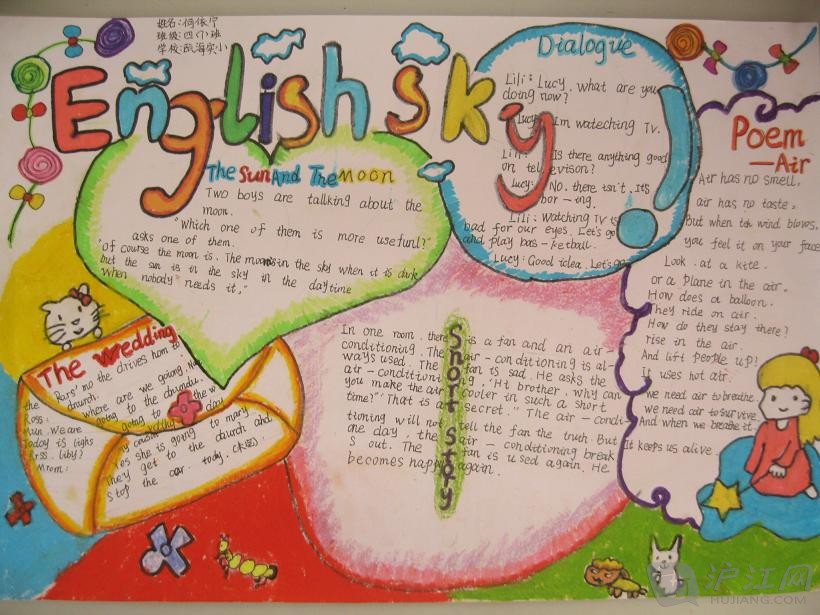 姓名:何依宁
班级:四(7)班
学校:瓯海实小
English sky!
The Sun And The Moon
Two boys are tallking about the
moon.
"Which one of them is more usefunl?"
asks one of them.
"of course the moon is. The moon is in the sky when it is dark
but the sun is in the sky in the daytime
when nobody needs it."
Dialogue
Lili: Lucy, what are you
doing now?
Lucy: I'm wateching TV.
Lili: Is there anything good
on televison?
Lucy: No. there isn't. It's
bor-ing.
Lili: Watching TV is
bad for our eyes. Let's go
and play bas-ketball.
Lucy: Good idea. Let's go
Poem
—Air
Air has no smell,
air has no taste,
But when the wind blows,
you feel it on your face
Look at a kite.
or a plane in the air.
How does a balloon.
They ride on air.
How do they stay there?
rise in the air.
And lift people up!
It uses hot air.
we need air to breathe.
we need air to survive.
And when we breathe it.
It keeps us alive.
The wedding
the Bars' mo the drives hom to
church.
Ross: where are we going.
Mun: We are going to the
Today is going to
Yes she is going to mary
They get to the church and
Stop the car. today. (未完)
Mrom:
Short Story
In one room, there is a fan and an air-
conditioning. The air-conditioning is al-
ways used. The fan is sad. He asks the
air-conditioning, "Hi brother, why can
you make the air cooler in such a short
time?" "That is a secret." The air-condi-
tioning will not tell the fan the truth. But
one day, the air-conditioning break
s out. The fan is used again. He
becomes happy again.
沪江网
HUJIANG.COM